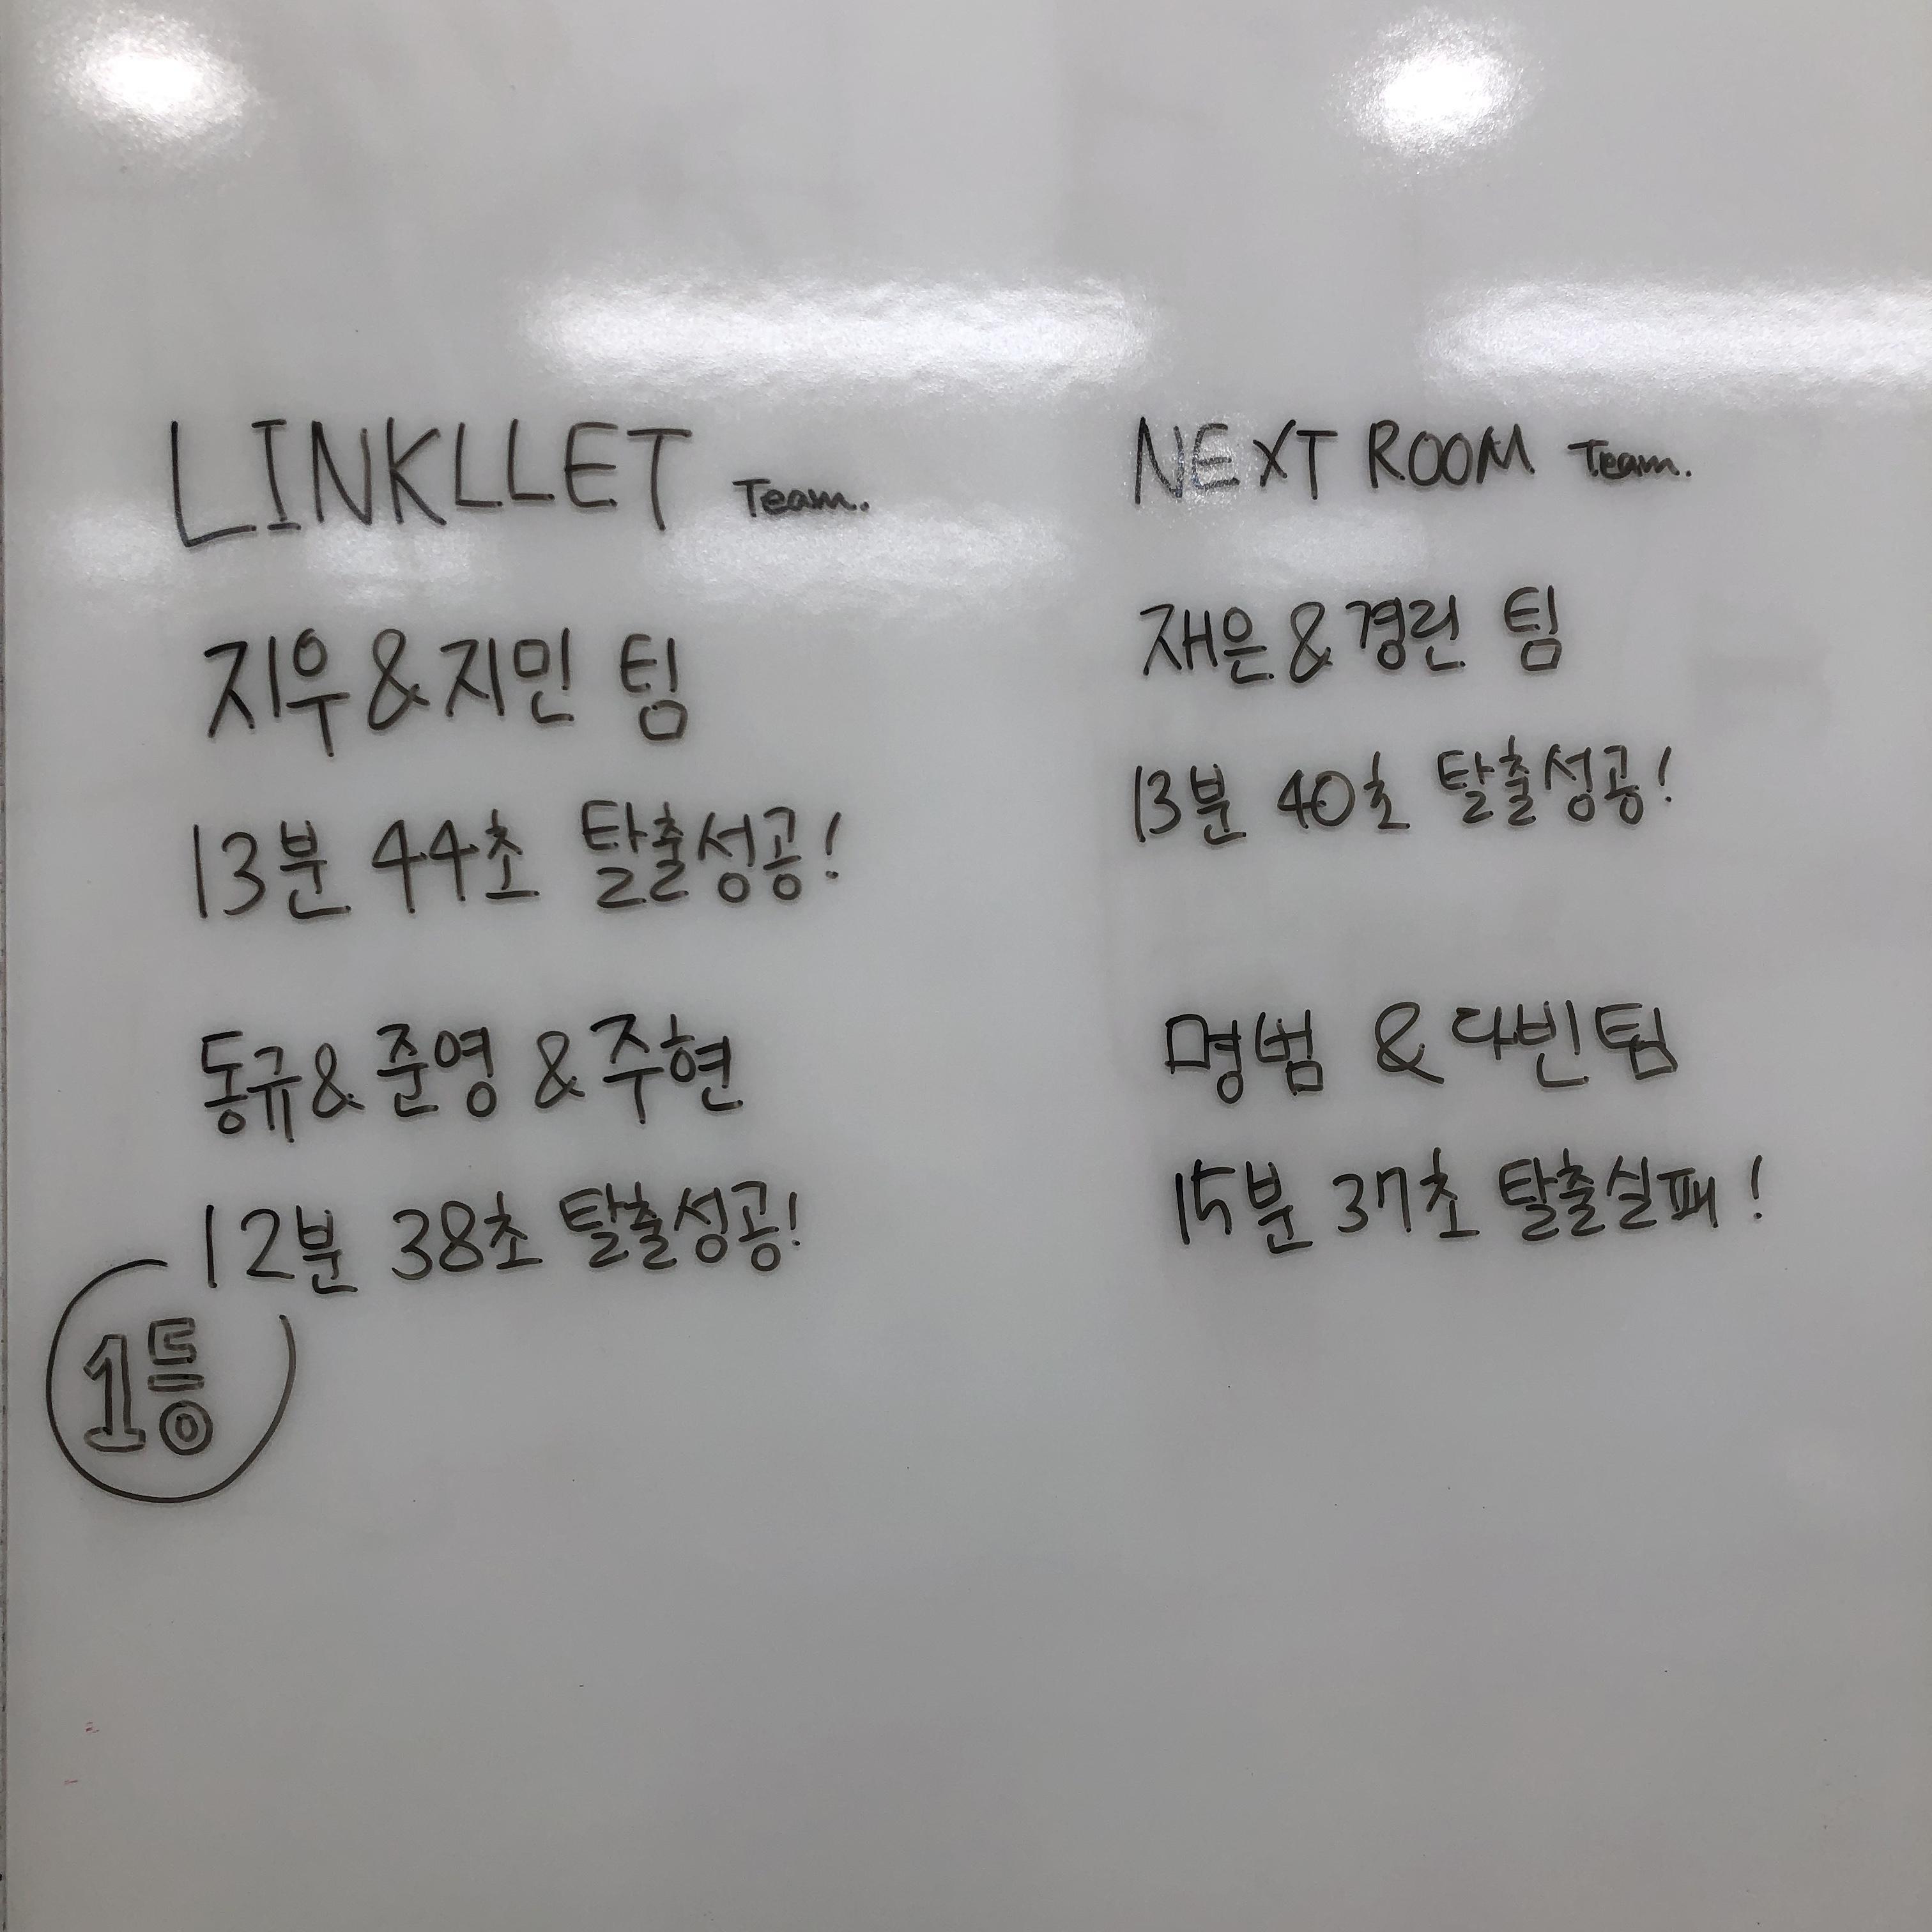 LINKLLET Team.
지우 & 지민 팀
13분 44초 탈출성공!
동규 & 준영 & 주현
12분 38초 탈출성공!
1등
NEXT ROOM Team.
재은 & 경린 팀
13분 40초 탈출성공!
명범 & 다빈팀
15분 37초 탈출실패!